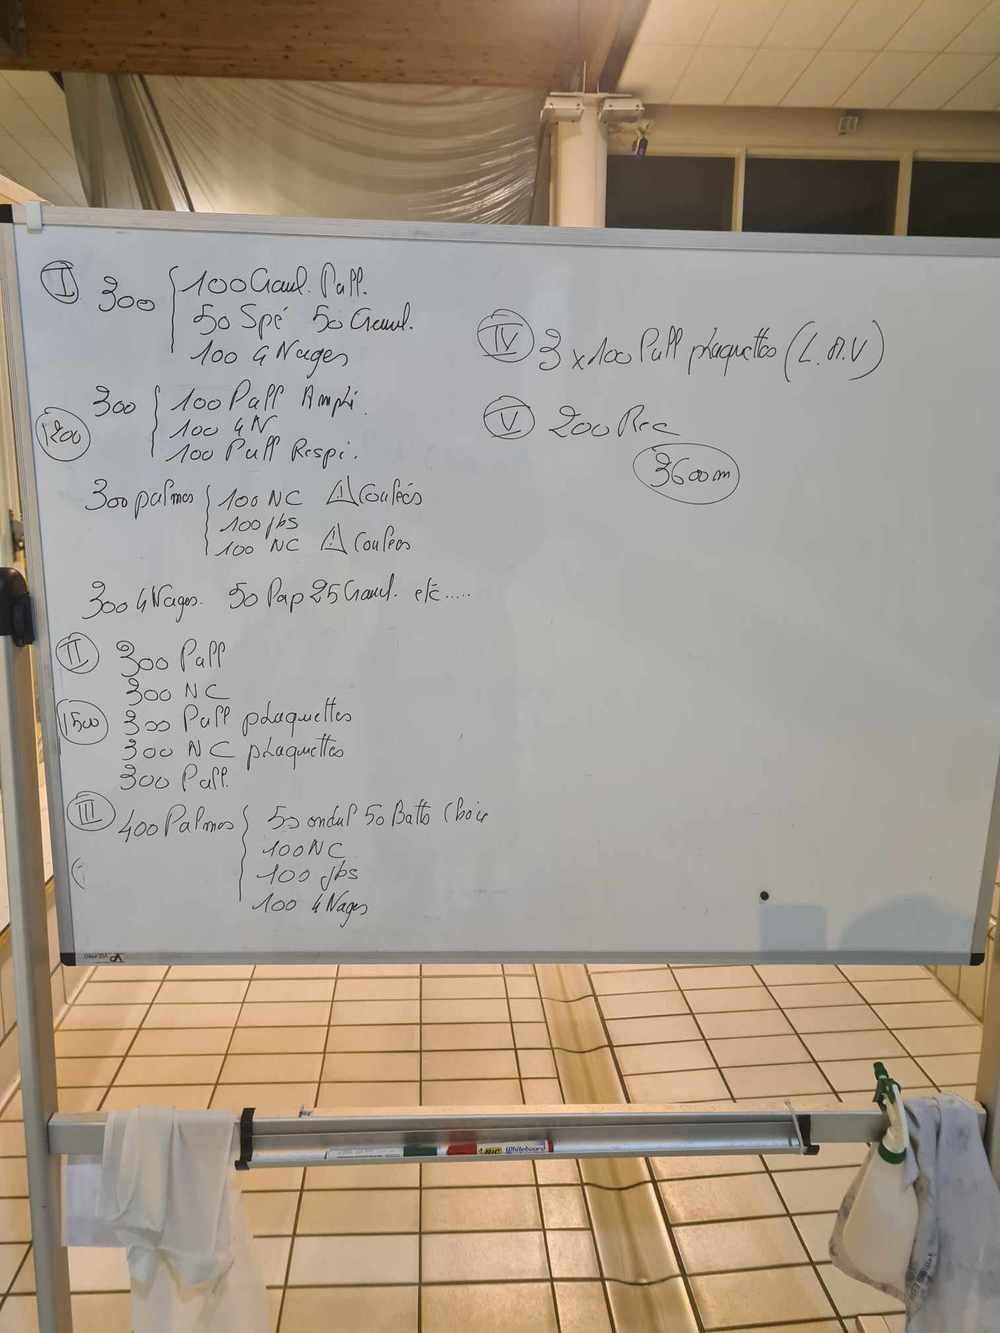 I 300 100 Crawl. Pull.
50 Spé 50 Crawl.
100 4 Nages
1200 300 100 Pull Ampli.
100 4N
100 Pull Respi.
300 palmes 100 NC ! Coulées
100 jbs
100 NC ! Coulées
300 4 Nages. 50 Pap 25 Crawl. etc.....
II 300 Pull
300 NC
1500 300 Pull plaquettes
300 NC plaquettes
300 Pull.
III 400 Palmes 50 ondul 50 Batts Choix
100 NC
100 jbs
100 4 Nages
IV 3 x 100 Pull plaquettes (L.M.V)
V 200 Rec
3600m
BIC Whiteboard